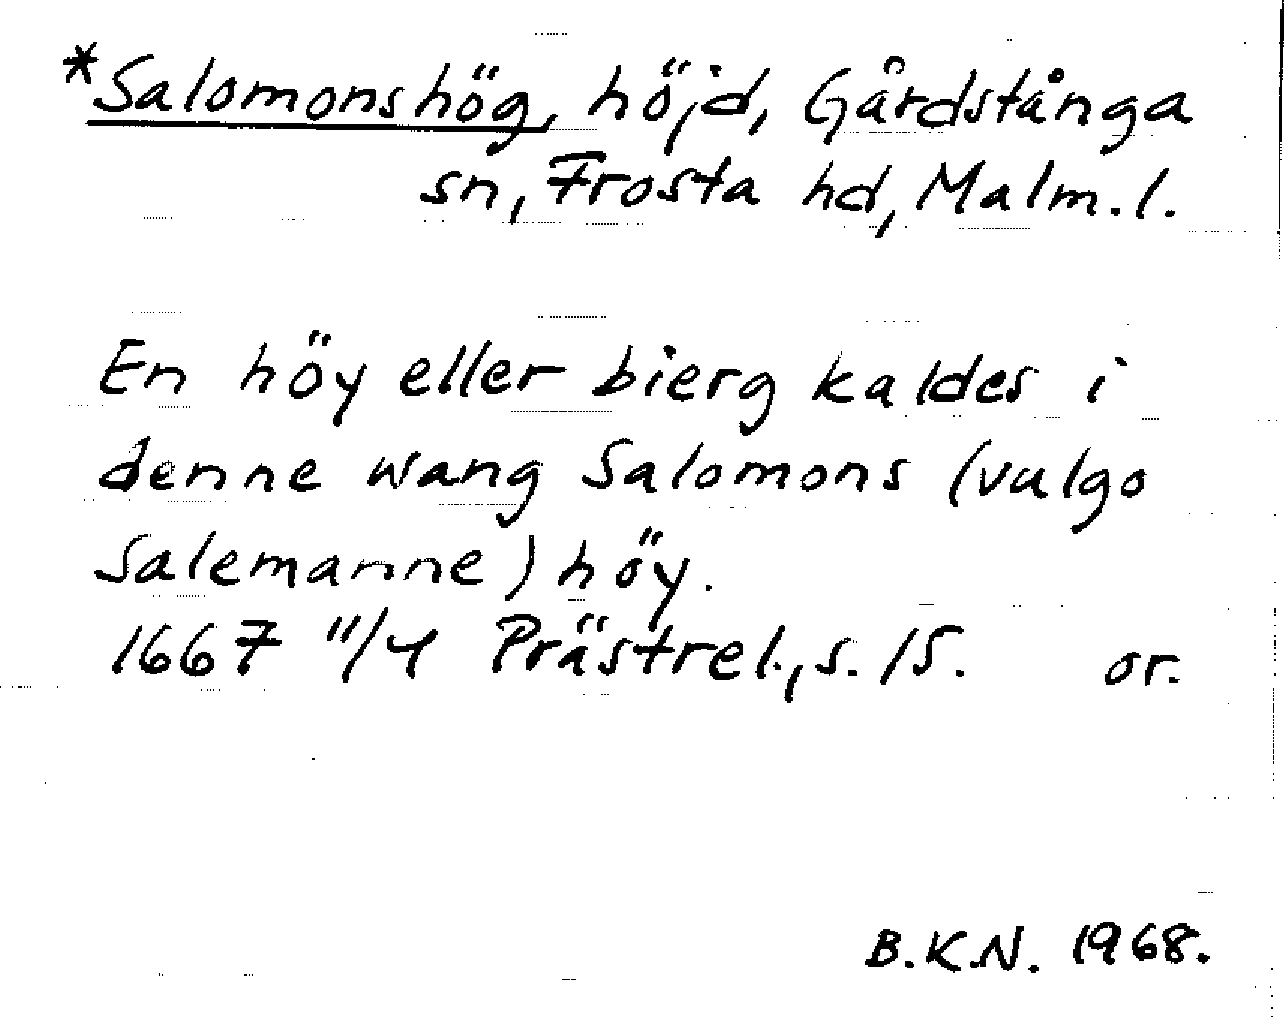 *Salomonshög, höjd, Gårdstånga
sn, Frosta hd, Malm. l.
En höy eller bierg kaldes i
denne wang Salomons (vulgo
Salemanne) höy.
1667 11/4 Prästrel., s. 15. or.
B.K.N. 1968.